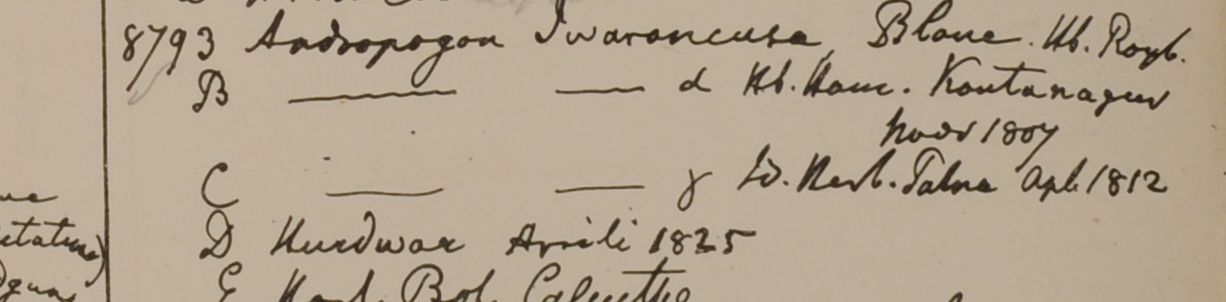 8793 Andropogon Iwarancusa, Blane. Hb. Roxb.
B ——— ——— α Hb. Ham. Kontanagur
Novr 1807
C ——— ——— γ Id. Herb. Patna Apl. 1812
D Hurdwar Aprili 1825
E Hort. Bot. Calcutta